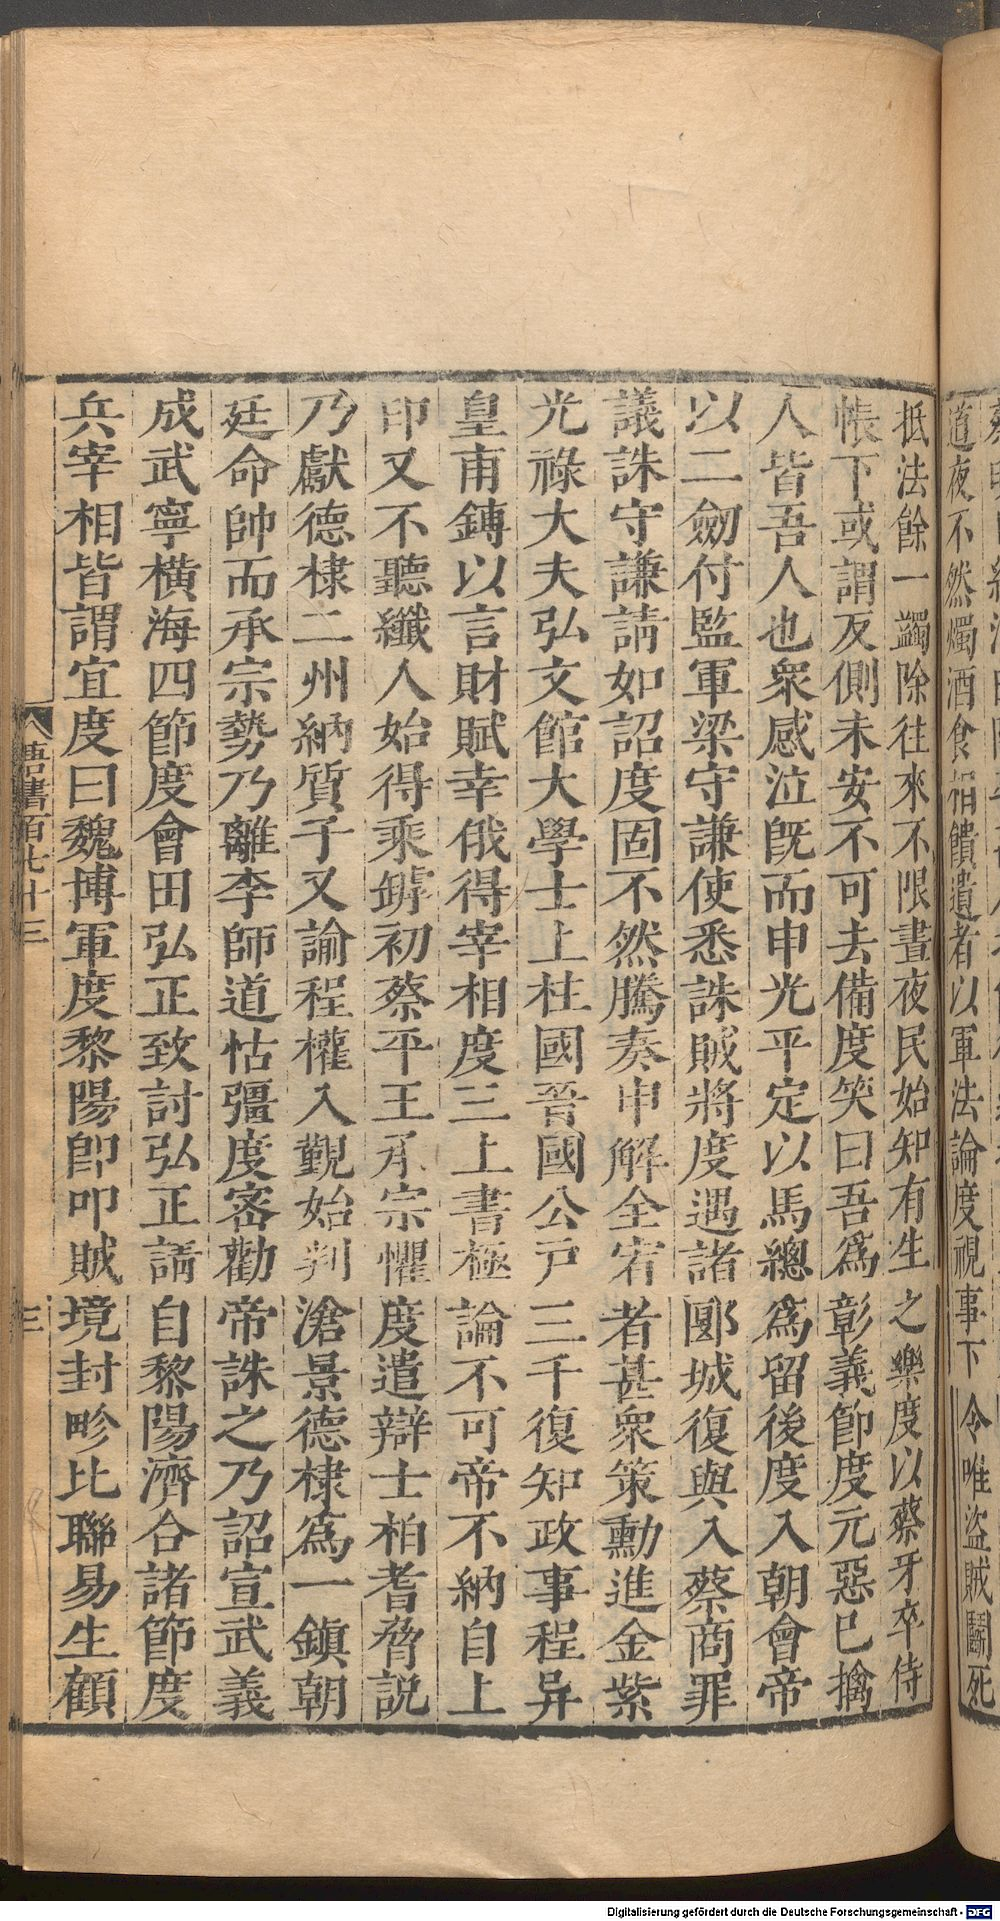 道夜不然燭酒食相饋遺者以軍法論度視事下令唯盜賊鬭死
抵法餘一蠲除往來不限晝夜民始知有生之樂度以蔡牙卒侍
帳下或謂反側未安不可去備度笑曰吾爲彰義節度元惡已擒
人皆吾人也衆感泣旣而申光平定以馬總爲留後度入朝會帝
以二劒付監軍梁守謙使悉誅賊將度遇諸郾城復與入蔡商罪
議誅守謙請如詔度固不然騰奏申解全宥者甚衆策勳進金紫
光祿大夫弘文館大學士上柱國晉國公戸三千復知政事程异
皇甫鎛以言財賦幸俄得宰相度三上書極論不可帝不納自上
印又不聽纖人始得乘罅初蔡平王承宗懼度遣辯士柏耆脅説
乃獻德棣二州納質子又諭程權入覲始判滄景德棣爲一鎮朝
廷命帥而承宗勢乃離李師道怙彊度密勸帝誅之乃詔宣武義
成武寧橫海四節度會田弘正致討弘正請自黎陽濟合諸節度
兵宰相皆謂宜度曰魏博軍度黎陽卽叩賊境封畛比聯易生顧
唐書百七十三
三
Digitalisierung gefördert durch die Deutsche Forschungsgemeinschaft - DFG